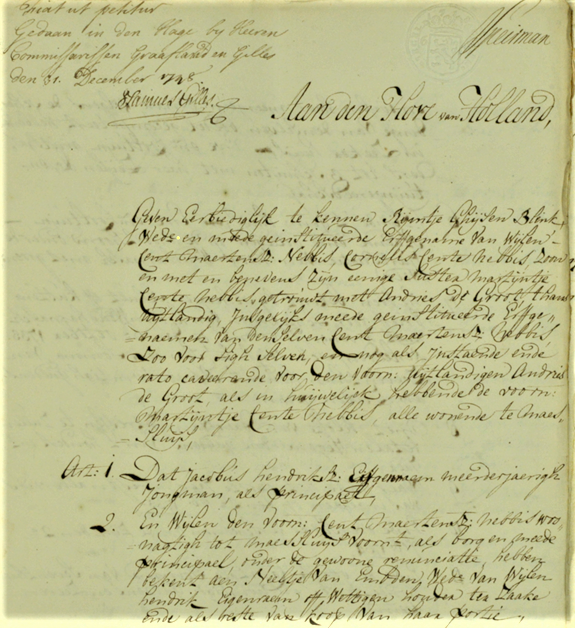 Fiat ut petitur
Gedaan in den Hage by Heeren
Commissarissen Graafland en Gilles
den 31. December 1748.
Aan den Hove van Holland,
Geven Eerbiedighlijk te kennen Krijntje
Wede en mede geinstitueerde Erffgename van Wijlen
Cent Maertensz: Nebbis, Cornelis Cente Nebbis Zoon
en met en benevens zijn eenige Suster Martijntje
Cente Nebbis, getrouwt met Andries de Groot, thans
uijtlandig, Insgelijks meede geinstitueerde Erffge-
naemen van denselven Cent Maertensz Nebbis
Zoo voor sigh selven, en nog als Instaende ende
rato caveerende voor den voorn: uijtlandigen Andries
de Groot als in huwelijk hebbende de voorn:
Martijntje Cente Nebbis, alle wonende te Maes-
-Sluijs,
Art: 1. Dat Jacobus hendriksz: meerderjaerigh
Jongman, als principael,
2. En Wijlen den voorn: Cent Maertensz: Nebbis woo-
-nagtigh tot Maessluijs voornt, als borg en meede
principael, onder de gewoone renunciatie, hebben
bekent aen Neeltje van Wede van Wijlen
hendrik Eigenraam off ten Laste
ende als reste van koop van haar portie